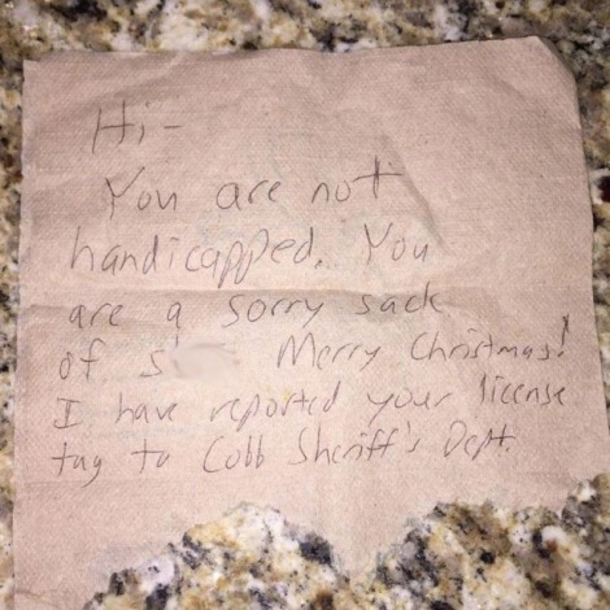 Hi-
You are not
handicapped. You
are a sorry sack
of s Merry Christmas!
I have reported your license
tag to Cobb Sheriff's Dept.